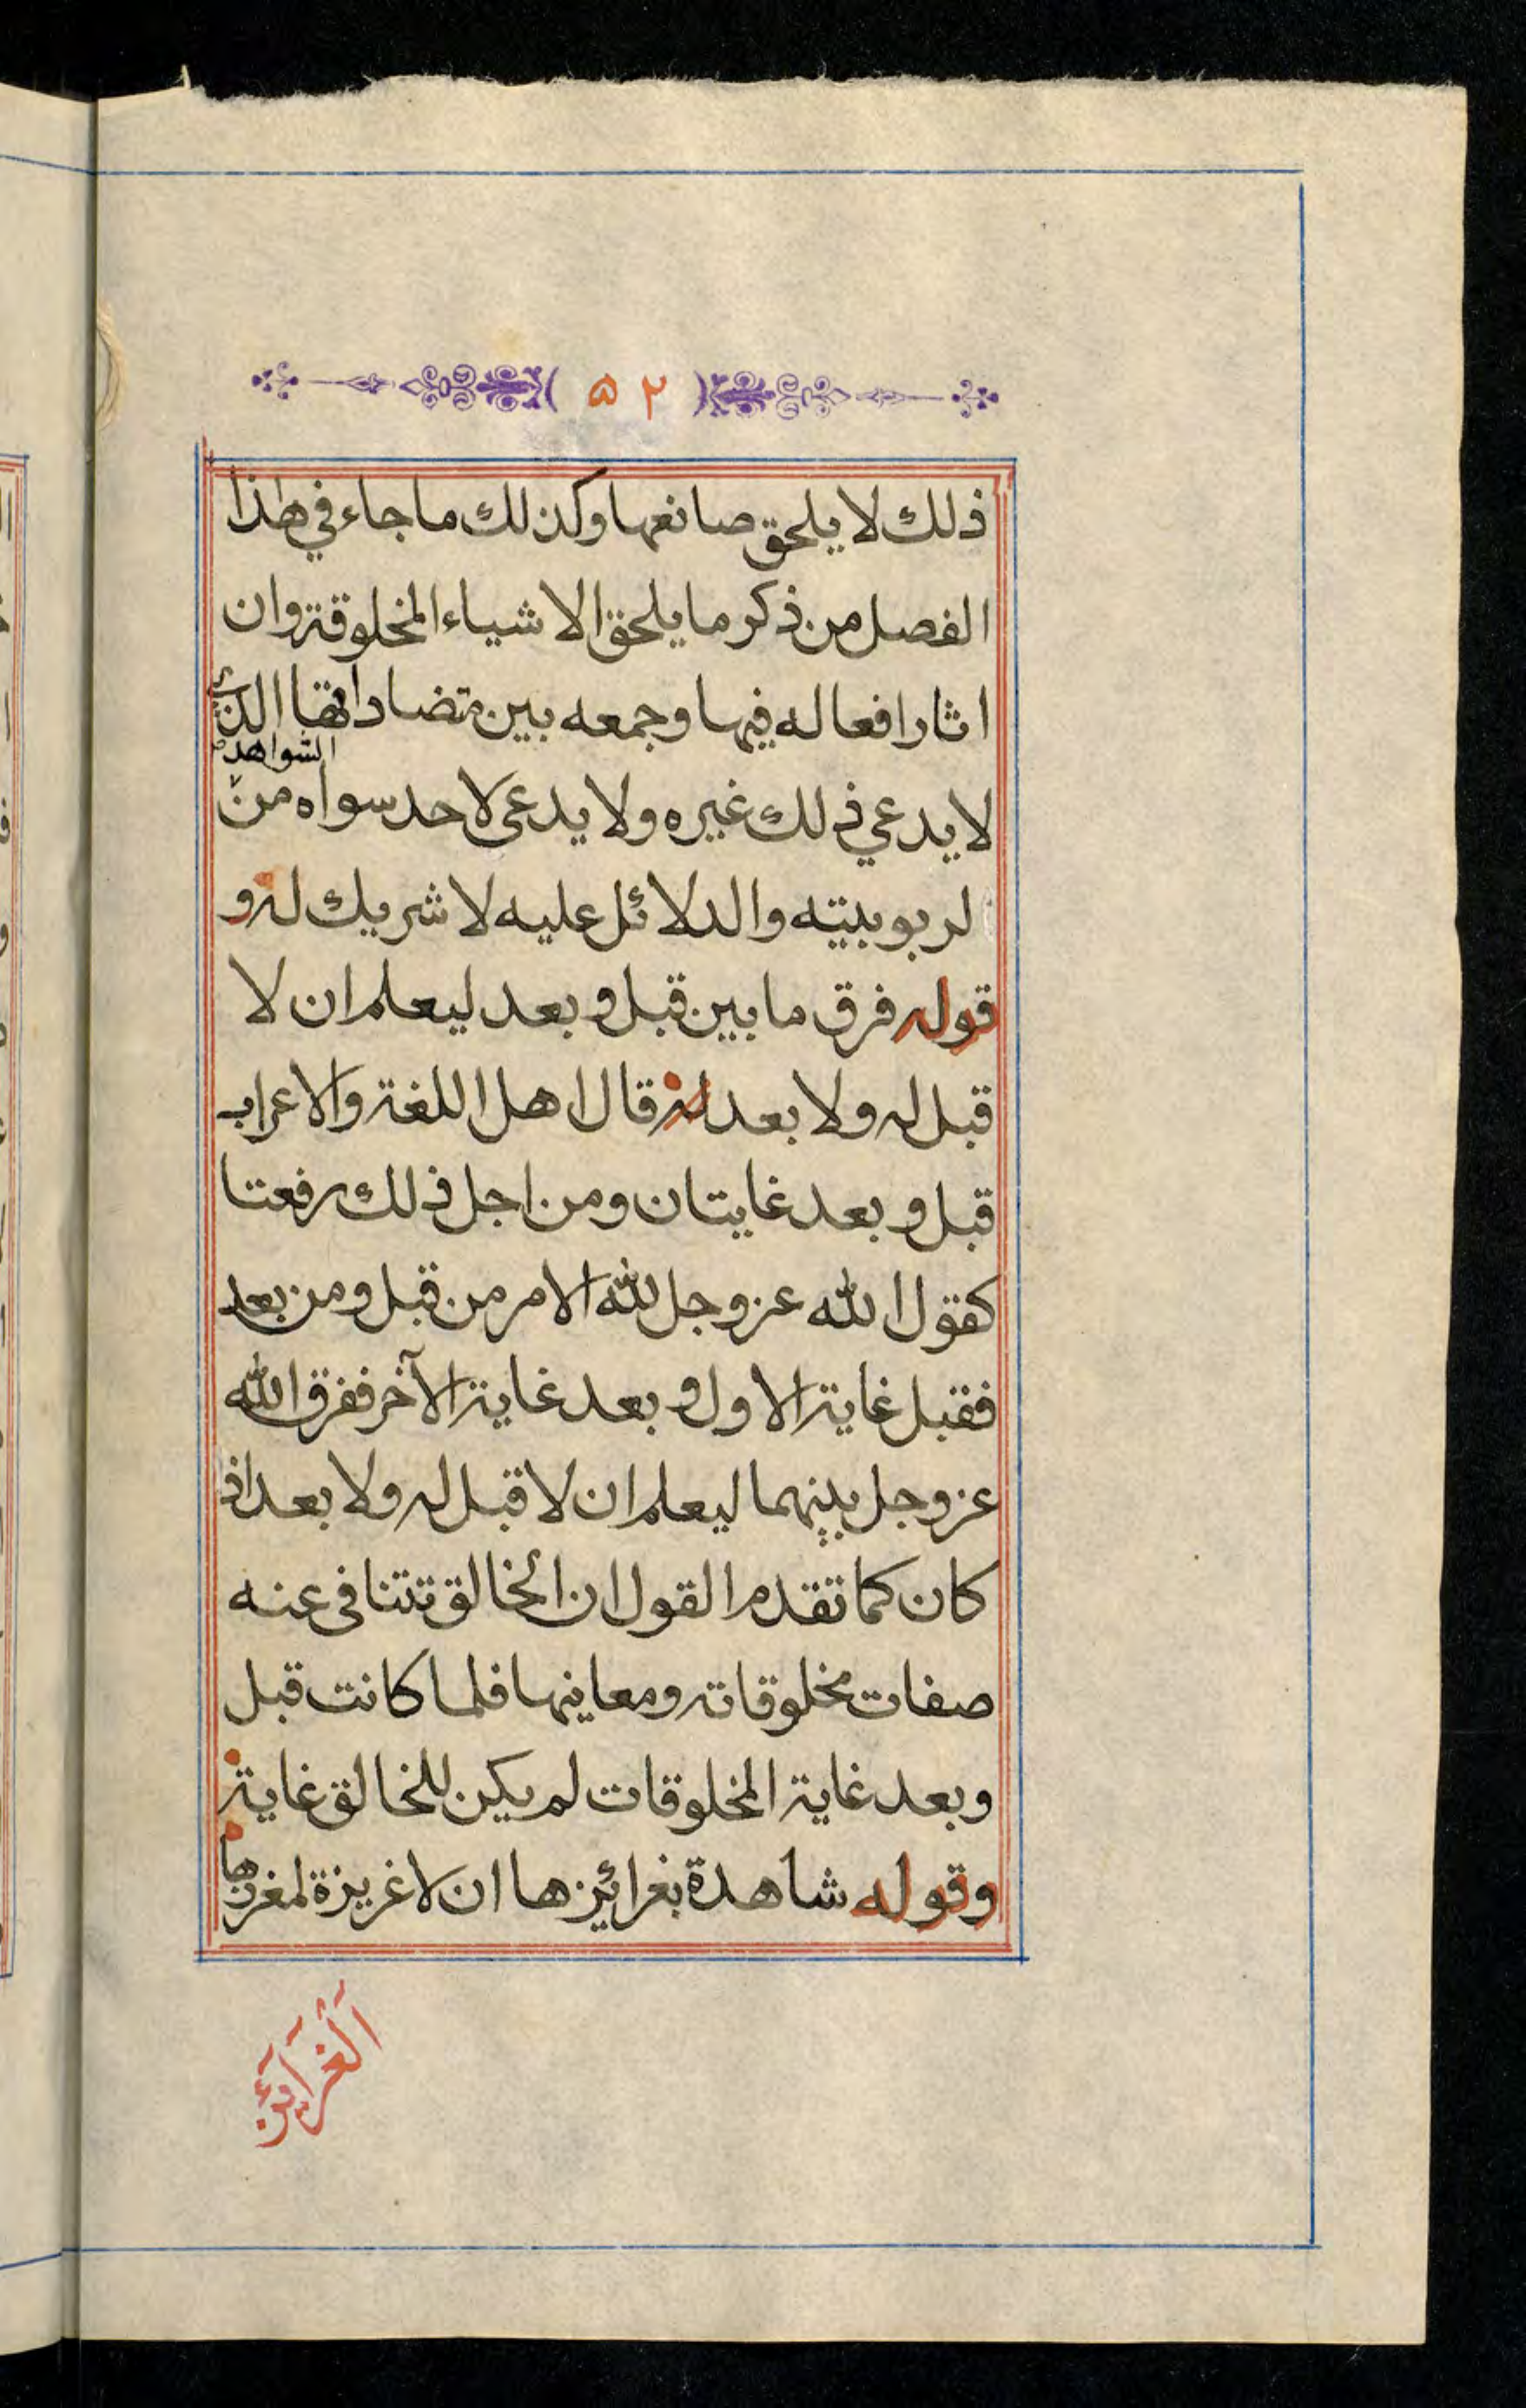 ( ٥٢ )
ذلك لا يلحق صانعها وكذلك ما جاء في هذا
الفصل من ذكر ما يلحق الاشياء المخلوقة وان
اثار افعاله فيها وجمعه بين متضاداتها الذي
الشواهد
لا يدعي ذلك غيره ولا يدعى لاحد سواه من
لربوبيته والدلائل عليه لا شريك له و
قوله فرق ما بين قبل و بعد ليعلم ان لا
قبل له ولا بعد له قال اهل اللغة والاعراب
قبل و بعد غايتان ومن اجل ذلك رفعتا
كقول الله عز وجل لله الامر من قبل ومن بعد
فقبل غاية الاول و بعد غاية الآخر ففرق الله
عز وجل بينهما ليعلم ان لا قبل له ولا بعد اذ
كان كما تقدم القول ان الخالق تتنافى عنه
صفات مخلوقاته ومعاينها فلما كانت قبل
وبعد غاية المخلوقات لم يكن للخالق غاية
وقوله شاهدة بغرائزها ان لا غريزة لمغرزها
الغرائز